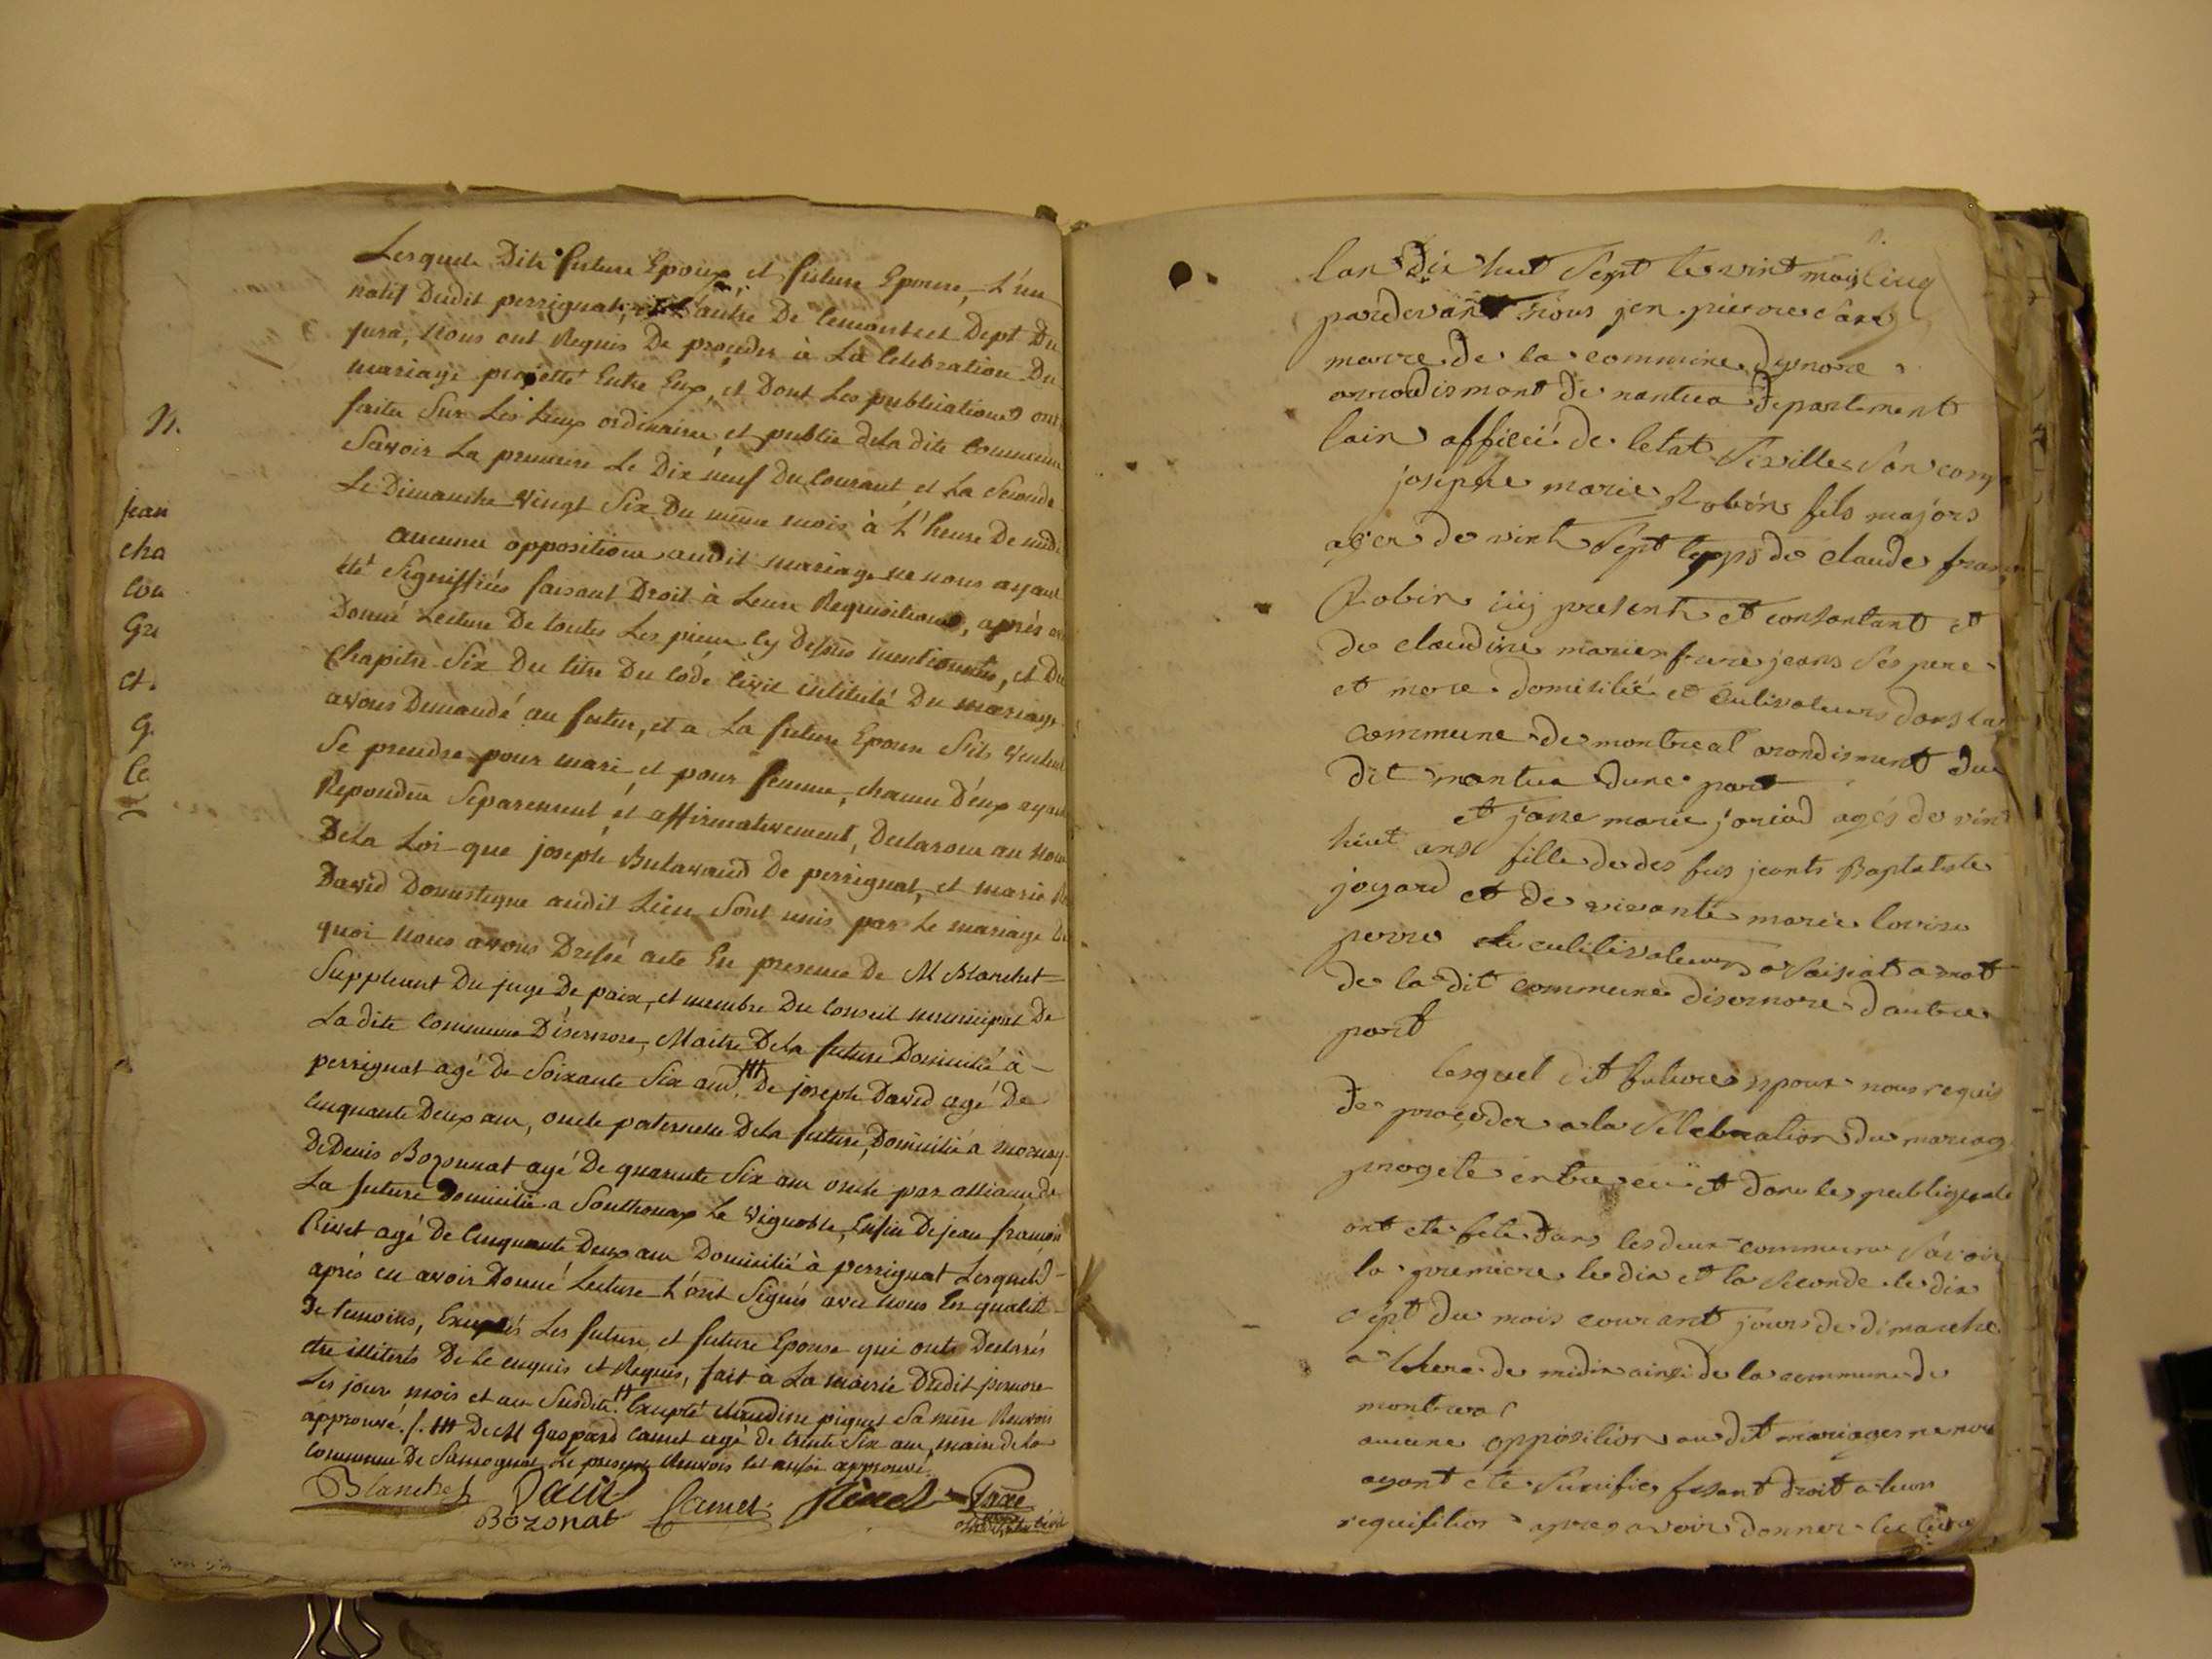 Lesquels Dits future Epoux, et future Epouse, L'un
natif Dudit perrignat, et L'autre De lemontset Dept Du
jura, Nous ont Requis De proceder à La Celebration Du
mariage projetté Entre Eux, et Dont Les publications ont
faites Sur Les Lieux ordinaires et public dela dite Commune
Savoir La premiere Le Dix neuf Du Courant, et La Seconde
Le Dimanche Vingt Six Du même mois à L'heure De midi
aucunes oppositions audit mariage ne nous ayant
été Signiffiées faisant Droit à Leurs Requisitions, après av
Donné Lecture De toutes Les pieces Cy Dessus mentionnées, et Du
Chapitre Six Du titre Du Code Civil intitulé Du mariage
avons Demandé au futur, et a La future Epouse S'ils veulent
Se prendre pour mari, et pour femme, chacun D'eux ayant
Repondu Separement, et affirmativement, Declarons au Nom
Dela Loi que joseph Butavand De perrignat, et marie
David Domestique audit Lieu Sont unis par Le mariage De
quoi Nous avons Dressé acte En presence De M Blanchet
Suppleant Du juge De paix, et membre Du Conseil municipal De
La dite Commune D'isernore, Maitre Dela future Domicilié à
perrignat agé De Soixante Six ans, ttt De joseph David agé De
Cinquante Deux ans, oncle paternelle Dela future, Domicilié à mornay
De Denis Bozonnat agé De quarante Six ans oncle par alliance de
La future Domicilié a Sonthonax Le Vignoble, Enfin De jean françois
Rivet agé De Cinquante Deux ans Domicilié à perrignat Lesquels
après en avoir Donné Lecture L'ont Signés avec Nous En qualité
De temoins, Exceptés Les future, et future Epouse qui onts Declarés
être illiterés De Ce enquis et Requis, fait à La mairie Dudit isernore
Les jours mois et an Susdits. tt Excepté Claudine piquet Sa mère Renvoi
approuvé. /. ttt De M Gaspard Camet agé De trente Six ans, maire dela
Commune De Samognat, Le present Renvois Est aussi approuvé.
Blanchet David Camet Rivet Savre
Bozonat
N.
jean
cha
Cou
Gr
et.
g.
le
lan Dix huit Sept le vint mois
pardevant Nous jen pierre
marre de la commune dysnore
arrondismont de nantua departement
lain officié de letat Siville
josiphe marie Robin fils majors
ager de vint Sept de claude fran
Robin iiy present et consantant et
de claudine marie frere jeans Ses pere
et mere domisilié et cultivateurs dans la
commune de montreal arondisment du
dit nantua dune part
et jane marie joriad agés de vin
huit ans fille de des fus jeants Baptatiste
joyard et de vivante marie lovise
perre cultilisvateurs
de la dit commune disernore dautre
part
lesquel dit future epoux nous requis
de proceder a la Sélebration du mariag
progete entre eu et donc les publiquat
ont ete fete dans les deux commune Savoir
la premiere le dix et la Seconde le dix
cept du mois courant jours de dimanche
a lhere de midi ainsi de la commune de
montrea
aucune opposition audit mariages ne nou
ayant ete Sinifie fesant droit a leurs
requisition apres avoir donner lecture